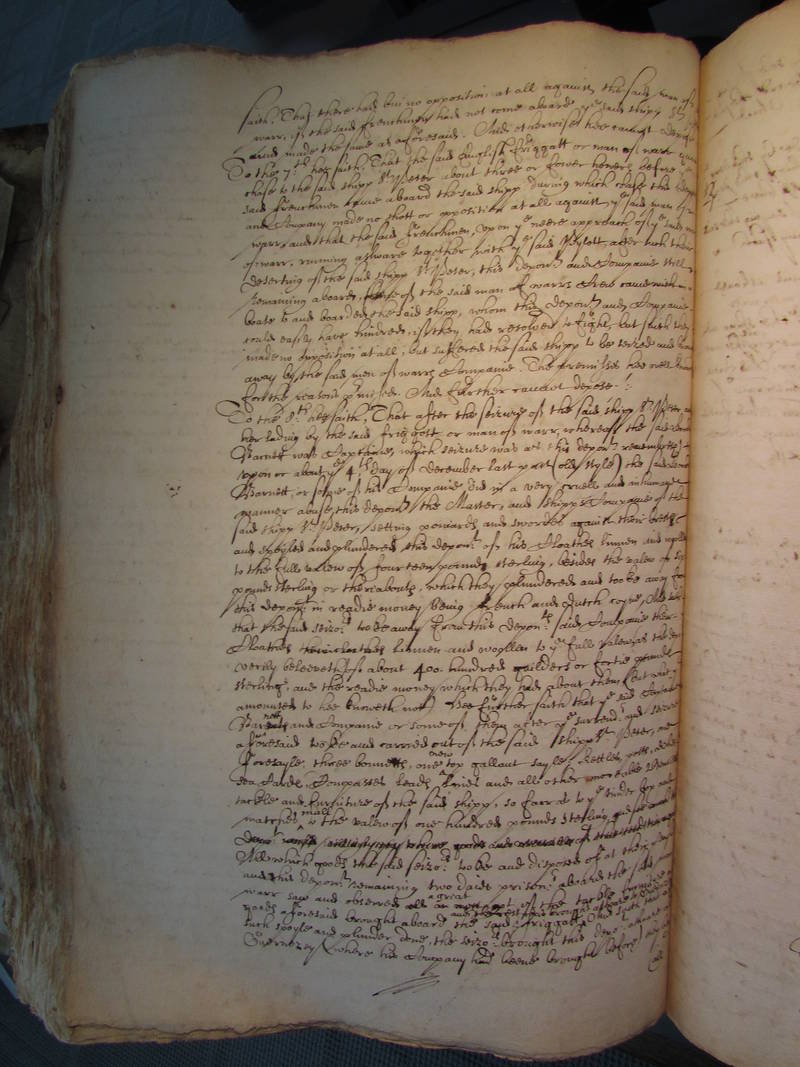 saith, That there had bin no opposition at all against the said man of
warr, if the said frenchmen had not come aboard ye said shipp St
and made the same as aforesaid. And otherwise hee cannot depose
To the 7th hee saith, That the said English friggatt or man of warr
chase to the said shipp St Peter about three or fower howers before
said frenchmen came aboard the said shipp during which chase this
and Company made no shott or opposition at all against ye said man of
warr, and that the said frenchmen, upon ye neere approach of ye said
of warr, running awaye together with ye said Pylott, after such their
deserting of the said shipp St Peter, this deponent and Companie still
remaining aboard, of the said man of warrs Crew came with
boate and boarded the said shipp, whom this deponent and Companie
could easily have hindred, if they had resolved to fight, but such they
made no opposition at all, but suffered the said shipp to be seized and
away by the said men of warrs Companie. The premisses hee well
for the reasons premised. And further cannot depose.
To the 8th hee saith, That after the seizure of the said shipp St Peter,
her lading by the said friggott or man of warr, whereof the said
Barnett was Captaine, which seizure was as this deponent remembreth
upon or about ye 4th day of December last past (old style) the said
Barnett, or some of his Companie did in a very cruell and inhumane
manner abuse this deponent the Master, and shipps Companie of the
said shipp St Peter, setting poniards and swordes against their brests
and spoyled and plundered this deponent of his Cloathes linnen and
to the full valew of fourteen pounds sterling, besides the valew of
pounds sterling or thereabouts, which they plundered and tooke away from
this deponent in readie money being french and dutch coyne, And
that the said seizors tooke away from this deponents said Companie their
Cloathes linnen and woollen to ye full valew as this
verily beleeveth of about 400 hundred guilders or fortie pounds
sterling, and the readie money which they had about them (but what
amounted to hee knoweth not) Hee further saith that ye said Captaine
Barnett and Companie or some of them after ye surrender and seizure
aforesaid tooke and carried out of the said shipp St Peter, one
foresayle, three bonnetts, one new top gallant sayle, kettles, potts,
sea Cards, Compasses leads, lynes and all other moveable
tackle and furniture of the said shipp, so farr as to ye tinder box and
matches, to the valew of one hundred pounds sterling,
All which goods the said seizors tooke and disposed of at their
and this deponent remaining two daies prisoner aboard the said
warr saw and observed a great part of the tackle
goods aforesaid brought aboard the said friggott, And
such spoyle and plunder done, the seizors brought this deponent
Guernezey (where his Company had beene brought before)